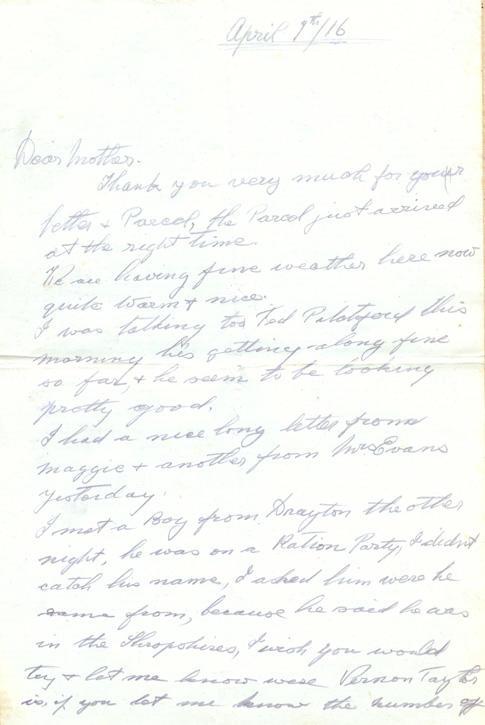 April 9th/16
Dear Mother.
Thank you very much for your
letter & Parcel, the Parcel just arrived
at the right time.
We are having fine weather here now
quite warm & nice.
I was talking too Ted this
morning hes getting along fine
so far, & he seem to be looking
pretty good.
I had a nice long letter from
Maggie & another from Mrs Evans
yesterday.
I met a Boy from Drayton the other
night, he was on a Ration Party, I didn't
catch his name, I asked him were he
came from, because he said he was
in the Shropshires, I wish you would
try & let me know were Vernon Taylor
is, if you let me know the number off